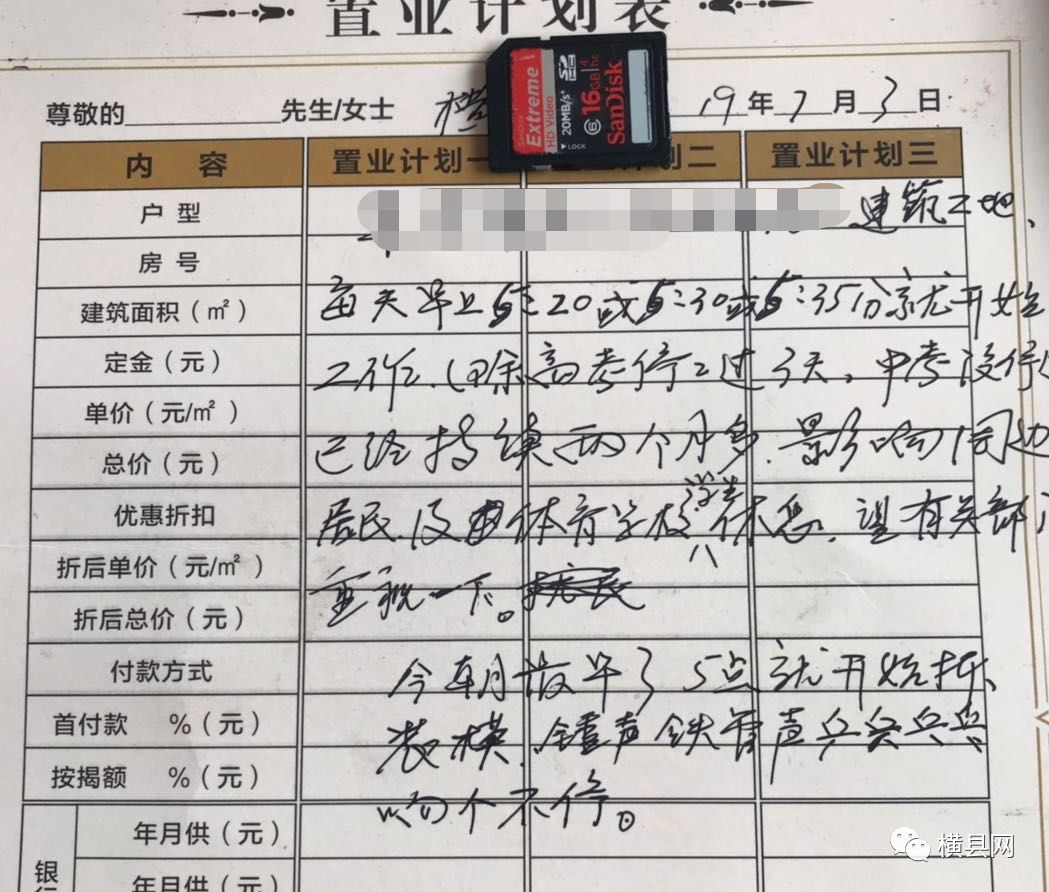 置业计划表
尊敬的 先生/女士 19年7月3日
内 容 置业计划一 计划二 置业计划三
户 型 建筑工地、
房 号
建筑面积（㎡） 每天早上5:20或5:30或5:35分就开始
定金（元） 工作、(除高考停工过3天，中考没停
单价（元/㎡）
总价（元） 已经持续两个月多.影响周边
优惠折扣 居民及体育学校学生休息，望有关部
折后单价（元/㎡） 重视一下。
折后总价（元）
付款方式 今朝最早了5点就开始拆、
首付款 %（元） 装模.锤声铁管声乒乒乓乓
按揭额 %（元） 响个不停。
年月供（元）
银行
年月供（元）
SanDisk Extreme
HD Video
20MB/s
LOCK
SDHC
6 16GB
SanDisk
横县网